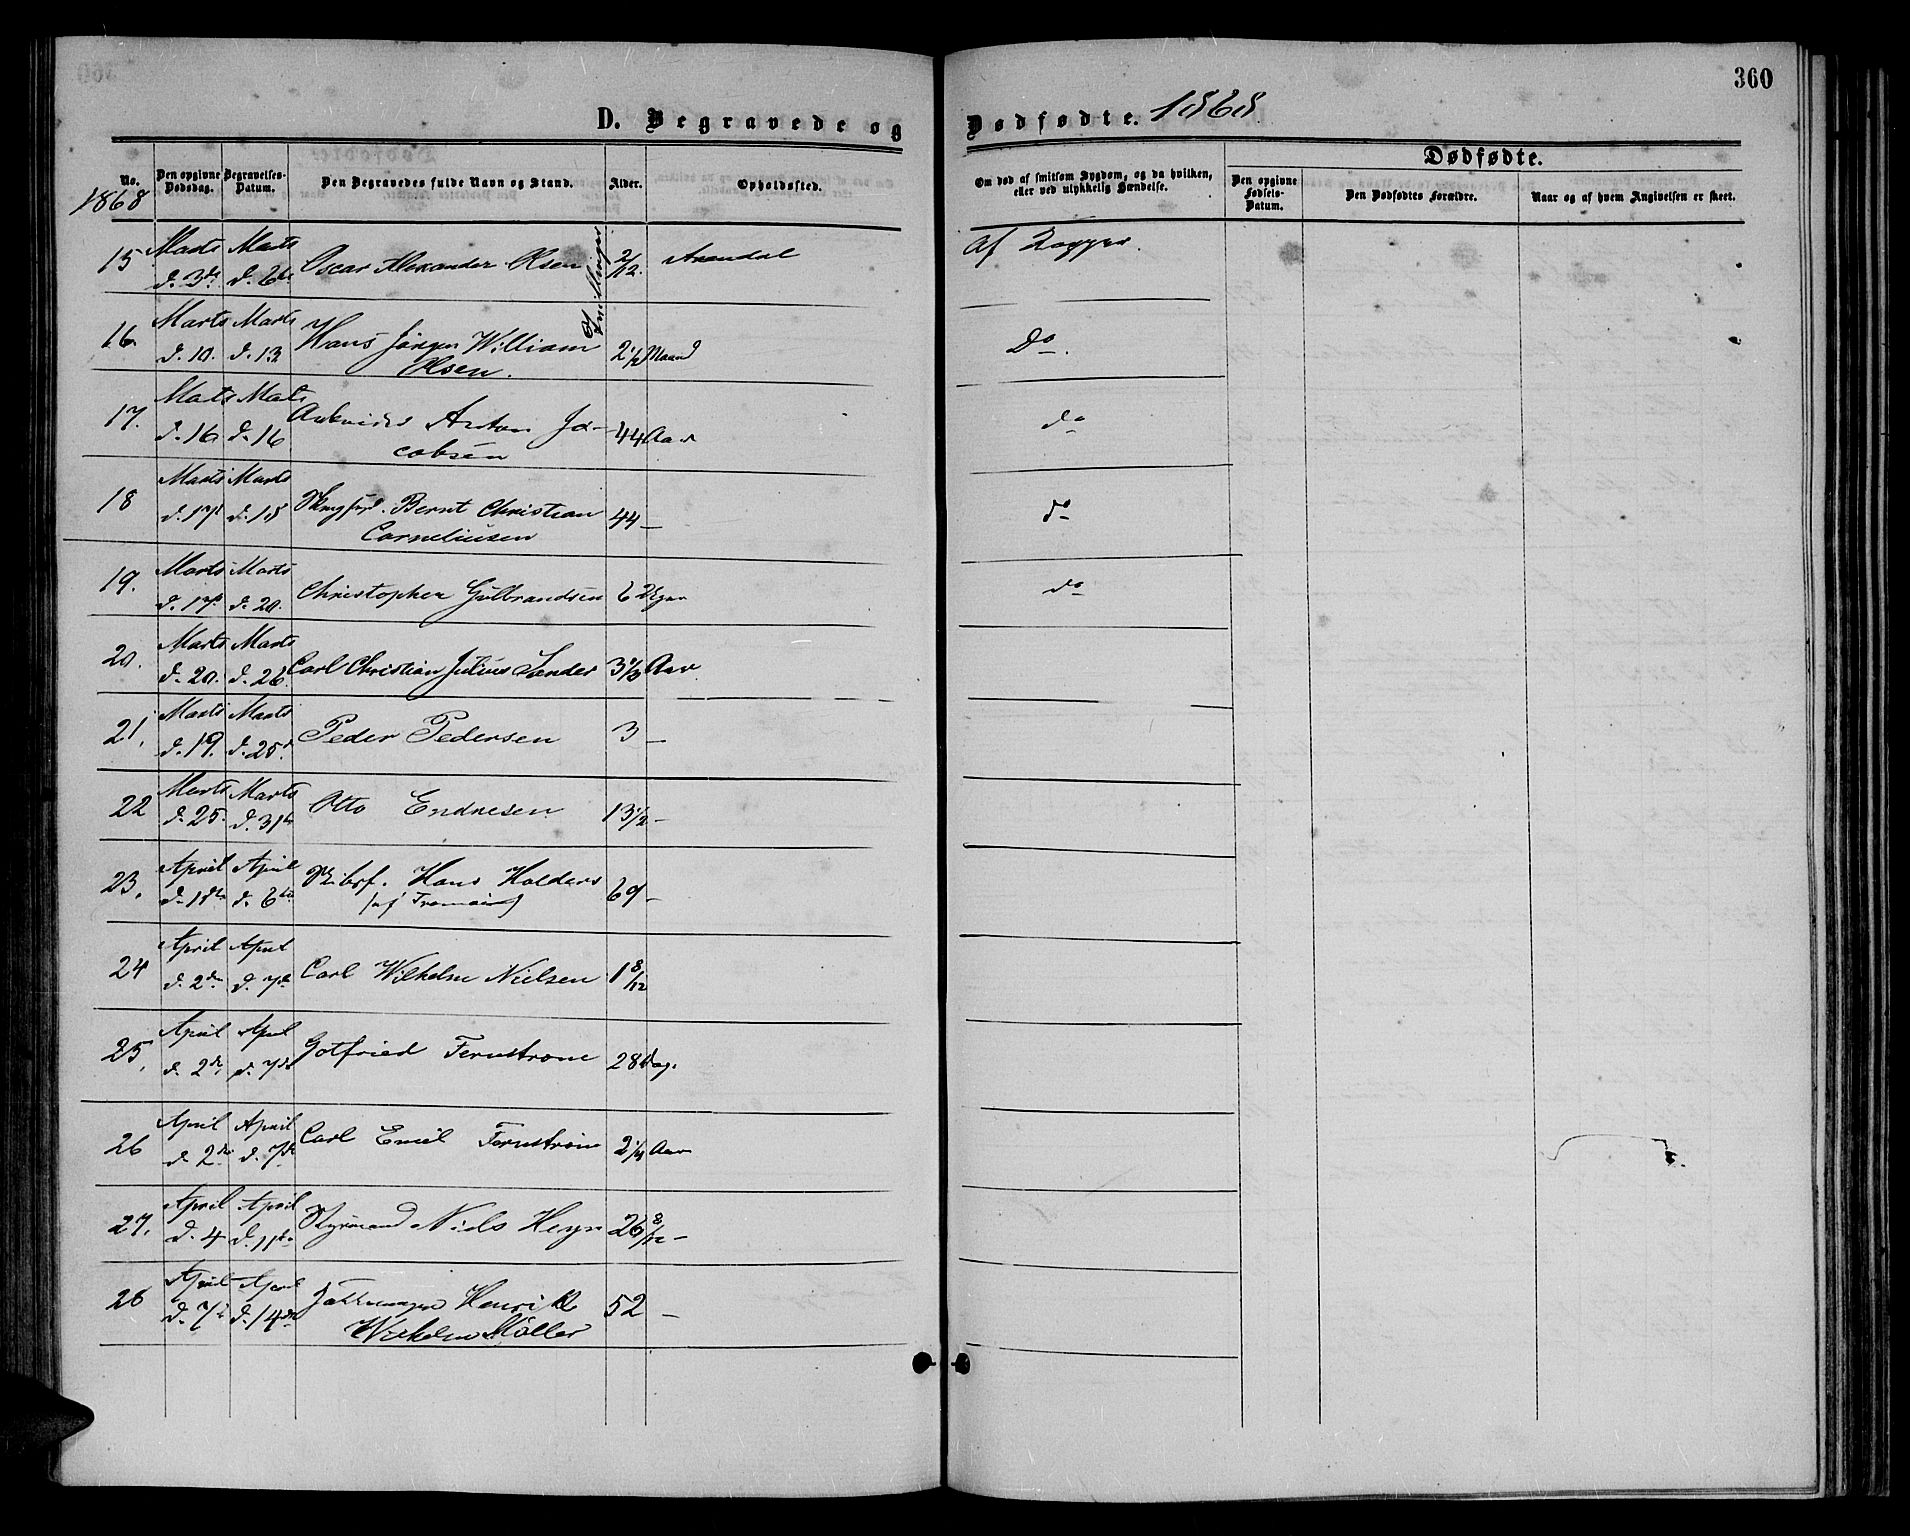 360
D. Begravede og Dødfødte. 1868
No.
Den opgivne Dødsdag.
Begravelses-Datum.
Den Begravedes fulde Navn og Stand.
Alder.
Opholdssted.
Om død af smitsom Sygdom, og da hvilken,
eller ved ulykkelig Hændelse.
Dødfødte.
Den opgivne Fødsels-Datum.
Den Dødfødtes Forældre.
Naar og af hvem Angivelsen er skeet.
1868
15 Marts d. 3de Marts d. 6te Oscar Alexander Olsen 2/12 Arendal
Tvillinger
16. Marts d. 10. Marts d. 13 Hans Jörgen William
Olsen. 2 1/2 Maand Do.
17. Marts d. 16 Marts d. 16 Anton Ja-
cobsen 44 Aar do
18 Marts d. 17de Marts d. 18 Bernt Christian
Corneliusen 44 — do
19. Marts d. 17de Marts d. 20. Christopher Gulbrandsen 6 Uger do
20. Marts d. 20. Marts d. 26. Carl Christian Julius Sander 3 1/2 Aar
21. Marts d. 19. Marts d. 25de Peder Pedersen 3 —
22 Marts d. 25. Marts d. 31te Otto Endresen 13 1/2 —
23. April d. 1ste April d. 6te Hans Holders
69 —
24 April d. 2den April d. 7de Carl Wilhelm Nielsen 1 8/12
25. April d. 2den April d. 7de Gotfried Fernstrom 28 Dag.
26 April d. 2den April d. 7de Carl Emil Fernstrom 2 1/4 Aar
27. April d. 4 April d. 11te Styrmand Niels Heyn 26 8/12 —
28 April d. 7de April d. 14de Henrik
Wilhelm Möller 52 —